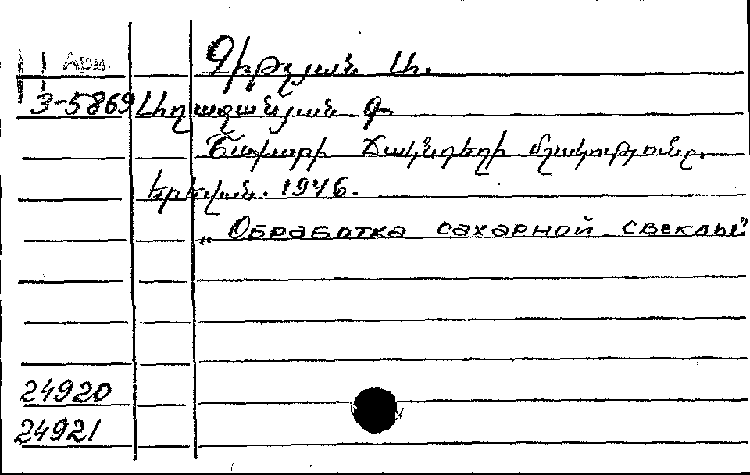 Арм.
Գիթչյան Ա.
3-5869 Աղազանյան Գ.
Շաքարի ճակնդեղի մշակությունը.
Երևան. 1946.
„Обработка сахарной свеклы"
24920
24921